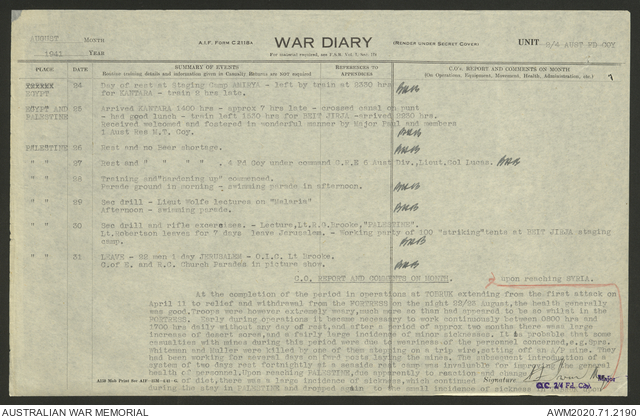 AUGUST MONTH
1941 YEAR
A.I.F. FORM C 2118A
WAR DIARY
(RENDER UNDER SECRET COVER)
UNIT 2/4 AUST FD COY
PLACE
DATE
SUMMARY OF EVENTS
Routine training details and information given in Casualty Returns are NOT required
REFERENCES TO APPENDICES
C.O's. REPORT AND COMMENTS ON MONTH
(On Operations, Equipment, Movement, Health, Administration, etc.)
EGYPT
24 Day of rest at Staging Camp AMIRYA - left by train at 2330 hrs
for KANTARA - train 2 hrs late.
EGYPT AND PALESTINE
25 Arrived KANTARA 1400 hrs - approx 7 Hrs late - crossed canal on punt
- had good lunch - train left 1530 hrs for BEIT JIRJA - arrived 2230 hrs.
Received welcomed and fostered in wonderful manner by Major Paul and members
1 Aust Res M.T. Coy.
PALESTINE 26 Rest and no Beer shortage.
" " 27 Rest and " " " " , 4 Fd Coy under command C.R.E 6 Aust Div., Lieut.Col Lucas.
" " 28 Training and "Hardening up" commenced.
Parade ground in morning - swimming parade in afternoon.
" " 29 Sec drill - Lieut Wolfe lectures on "Malaria"
Afternoon - swimming parade.
" " 30 Sec drill and rifle exercises - Lecture, Lt. Brooke, "PALESTINE".
Lt. Robertson leaves for 7 days leave Jerusalem. - Working party of 100 "striking" tents at BEIT JIRJA staging
camp.
" " 31 LEAVE - 28 men 1 day JERUSALEM - O.I.C. Lt Brooke.
C.of E. and R.C. Church Parades in picture show.
C.O. REPORT AND COMMENTS ON MONTH.
upon reaching SYRIA.
At the completion of the period in operations at TOBRUK extending from the first attack on
April 11 to relief and withdrawal from the FORTRESS on the night 22/23 August, the health generally
was good. Troops were however extremely weary, much more so than had appeared to be so whilst in the
FORTRESS. Early during operations it became necessary to work continuously between 0800 hrs and
1700 hrs daily without any day of rest, and after a period of approx two months there was large
increase of desert sores, and a fairly large incidence of minor sicknesses. It is probable that some
casualties with mines during this period were due to weariness of the personnel concerned, e.g. Sprs.
Whiteman and Muller were killed by one of them stepping on a trip wire, setting off an A/P mine. They
had been working for several days on ford posts laying the mines. The subsequent introduction of a
system of two days rest fortnightly at a seaside rest camp was invaluable for improving the general
health of personnel. Upon reaching PALESTINE, due apparently to reaction and change
of diet, there was a large incidence of sickness, which continued
during the stay in PALESTINE and dropped again to the small incidence of
Signature
Major
O.C. 2/4 Fd. Coy.
AUSTRALIAN WAR MEMORIAL
AWM2020.71.2197